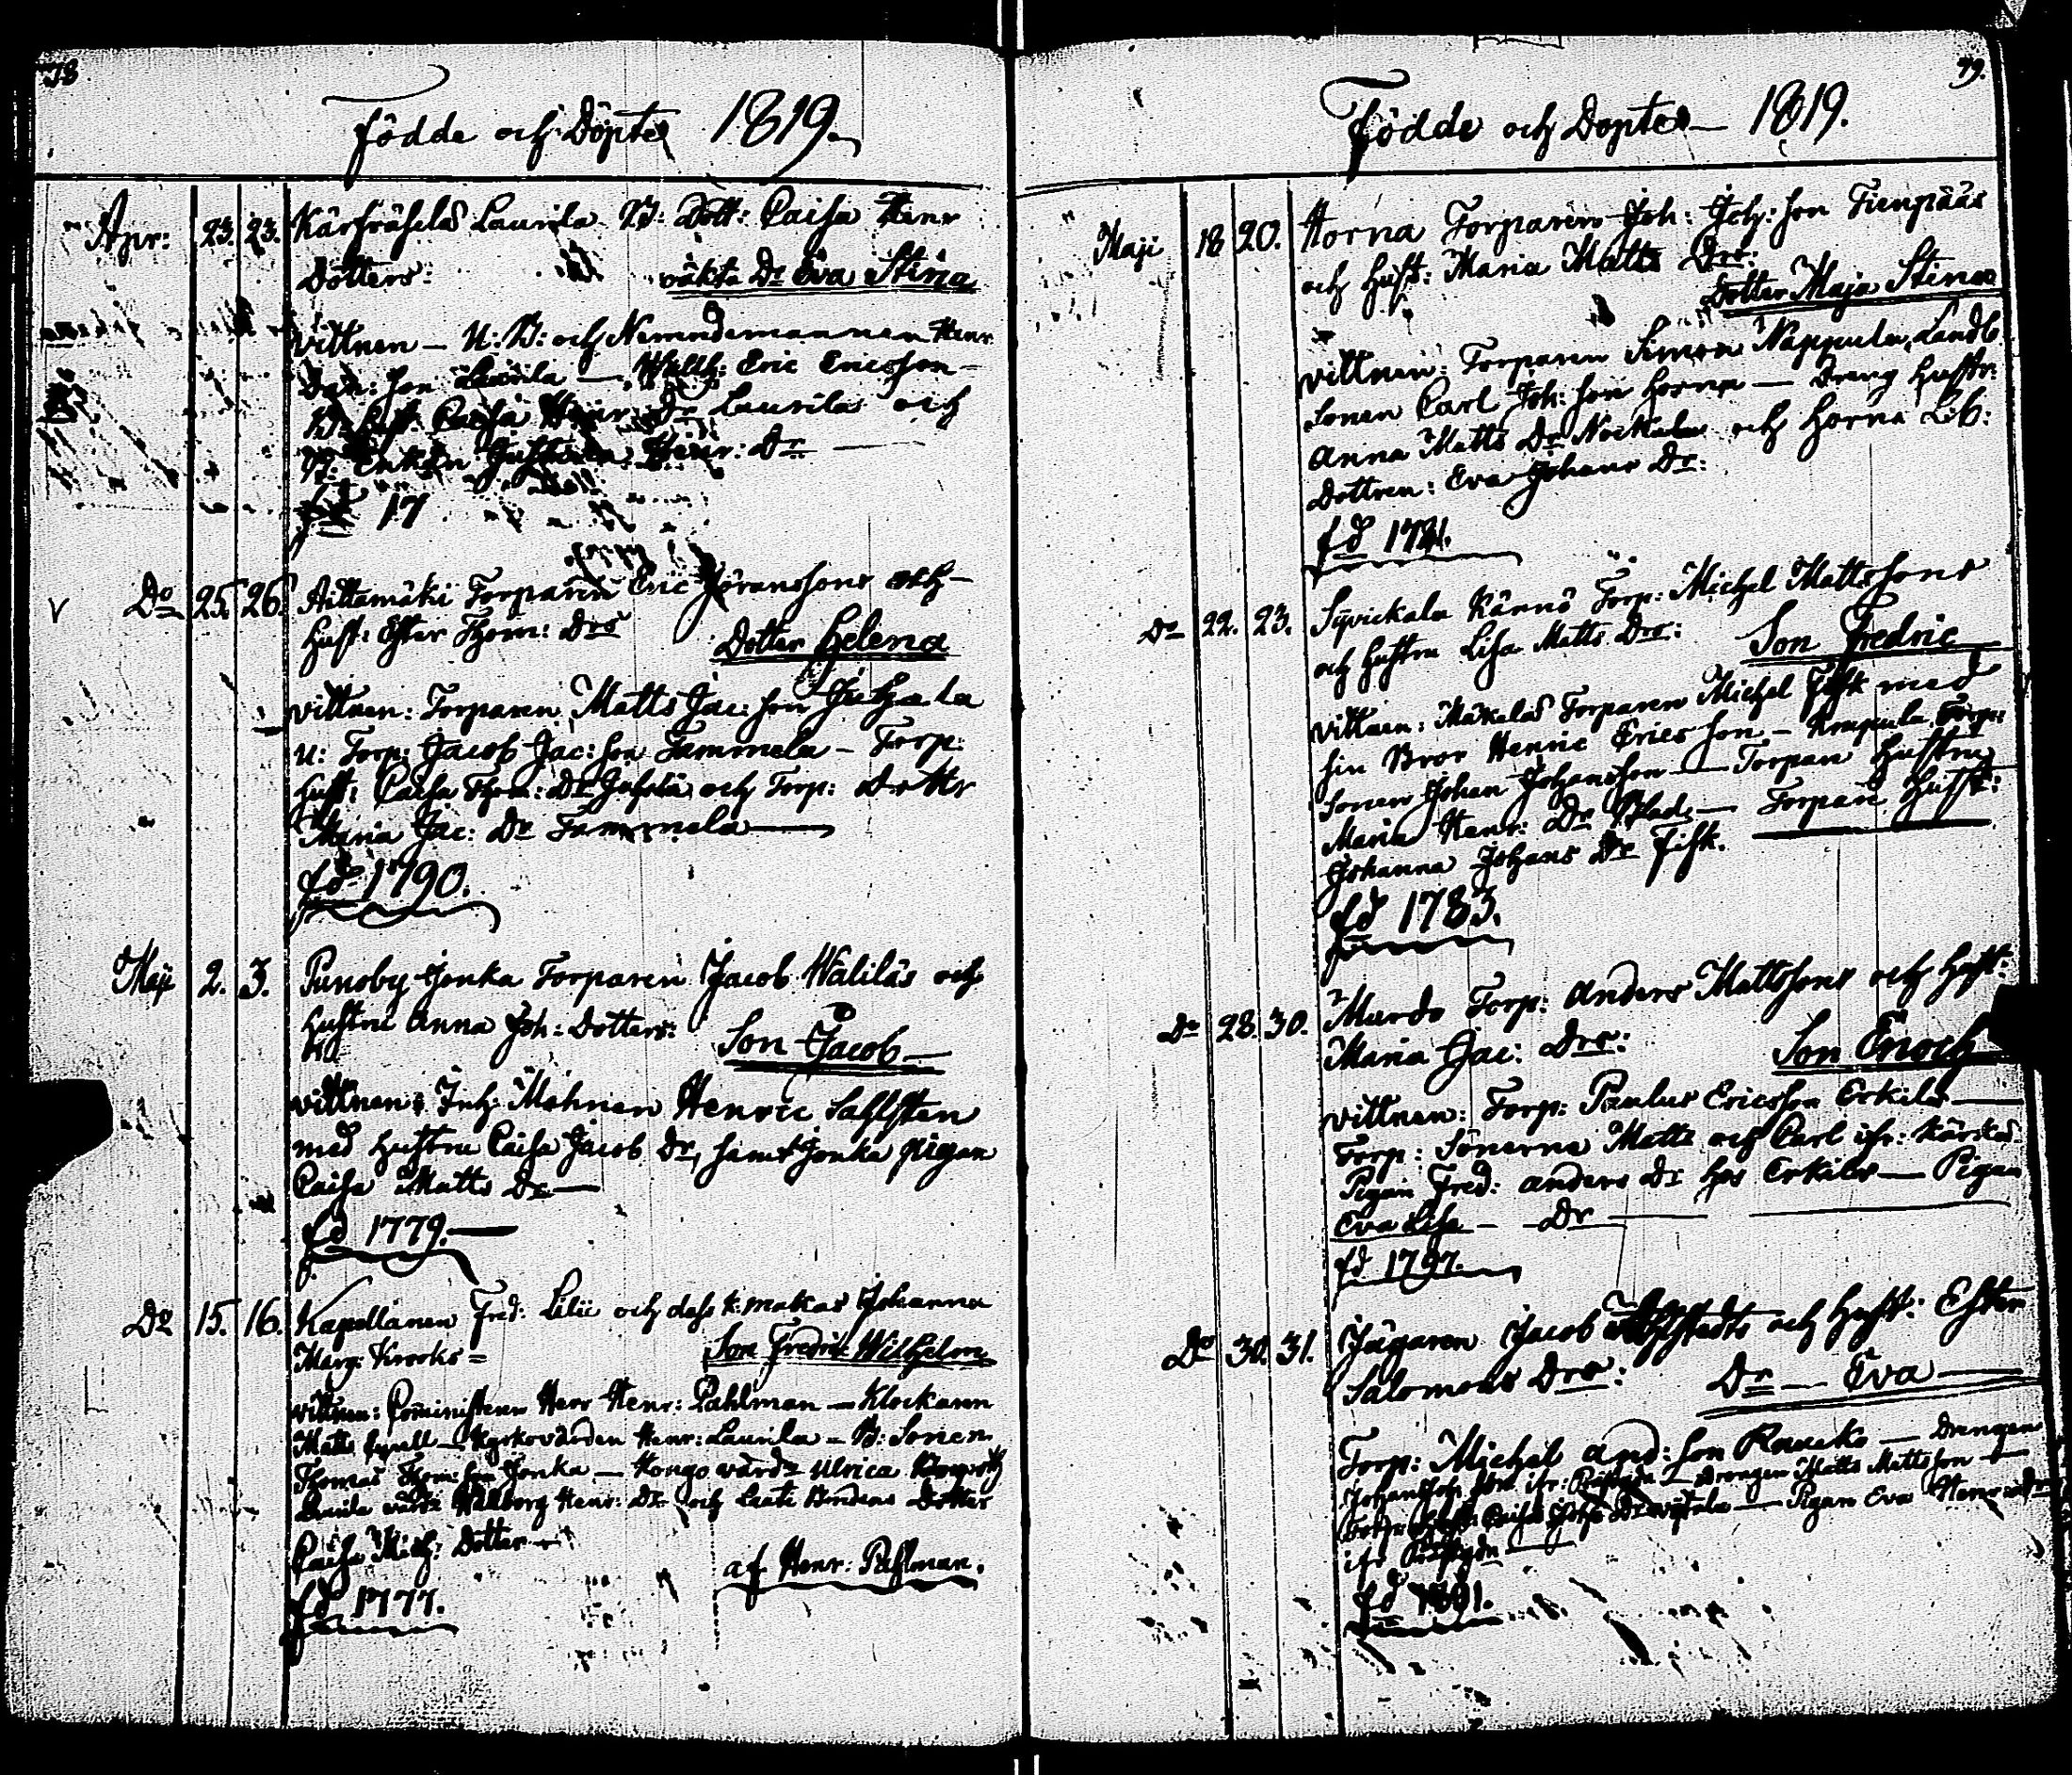 78
Födde och Döpte 1819.
Apr: 23. 23. Laurila B: Dott: Caisa Henr
Dotters: oäkta Dr Eva Stina
vittnen — U: B: och Nemndemannen Henr
son Laurila — Eric Ericsson —
Caisa Henr: Dr Laurila och
Henr: Dr
fd 17
v Do 25. 26. Aittamäki Torparen Eric Göranssons och
Hust: Ester Thom: Drs Dotter Helena
vittnen: Torparen Matts Jac: son Juhala
u: Torp: Jacob Jac: son Tammela — Torp:
Hust: Caisa Thom: Dr och Torp: Dottr
Maria Jac: Dr Tammela
fd 1790.
Maji 2. 3. Punoby Jonka Torparen Jacob Waliläs och
Hustru Anna Joh: Dotters: Son Jacob
vittnen: Inh: Henric Sahlsten
med Hustru Caisa Jacob Dr, samt Jonka pigan
Caisa Matts Dr
fd 1779.
Do 15. 16. Kapellanen Fred: Lilii och dess k: makas Johanna
Marg: Krooks = Son Fredric Wilhelm
vittnen: Comministern Herr Henr: Pahlman — Klockarn
Matts — Kyrkovärden Henr: Laurila — B: Sonen
Thomas Thom: son Jonka — Ulrica
Walborg Henr: Dr och Dotter
Caisa Mich: Dotter
af Henr: Pahlman.
fd 1777.
79.
Födde och Döpte — 1819.
Maji 18 20. Horna Torparen Joh: Joh: son Fienpääs
och Hust: Maria Matts Drs:
Dotter Maja Stina
vittnen: Torparen Simon Nappula, Landb
Sonen Carl Joh: son Horna — Dreng Hustr:
Anna Matts Dr och Horna Lib:
Dottren: Eva Johans Dr:
fd
Do 22. 23. Syvickala Kännö Torp: Michel Mattssons
och Hustru Lisa Matts Drs: Son Fredric
vittnen: Mäkelas Torparen Michel Fisk med
sin Bror Henric Ericsson — Krapula Torp:
Sonen Johan Johansson — Torpan Hustru
Maria Henr: Dr — Torpan Hust:
Johanna Johans Dr Fisk.
fd 1783.
Do 28. 30. Murdo Torp: Anders Mattssons och Hust:
Maria Jac: Drs: Son Enoch
vittnen: Torp: Paulus Ericsson Erkilä
Torp: Sönerne Matts och Carl ifr:
Pigan Fred: Anders Dr hos Erkilä — Pigan
Eva Lisa — Dr
fd 1797.
Do 30. 31. Jägaren Jacob och Hust: Ester
Salomons Drs: Dr — Eva
Torp: Michel And: son — Drengen
Johan Joh: son ifr: — Drengen Matts Mattsson —
Caisa Dr — Pigan Eva Henrics Dr
ifr
fd 1801.